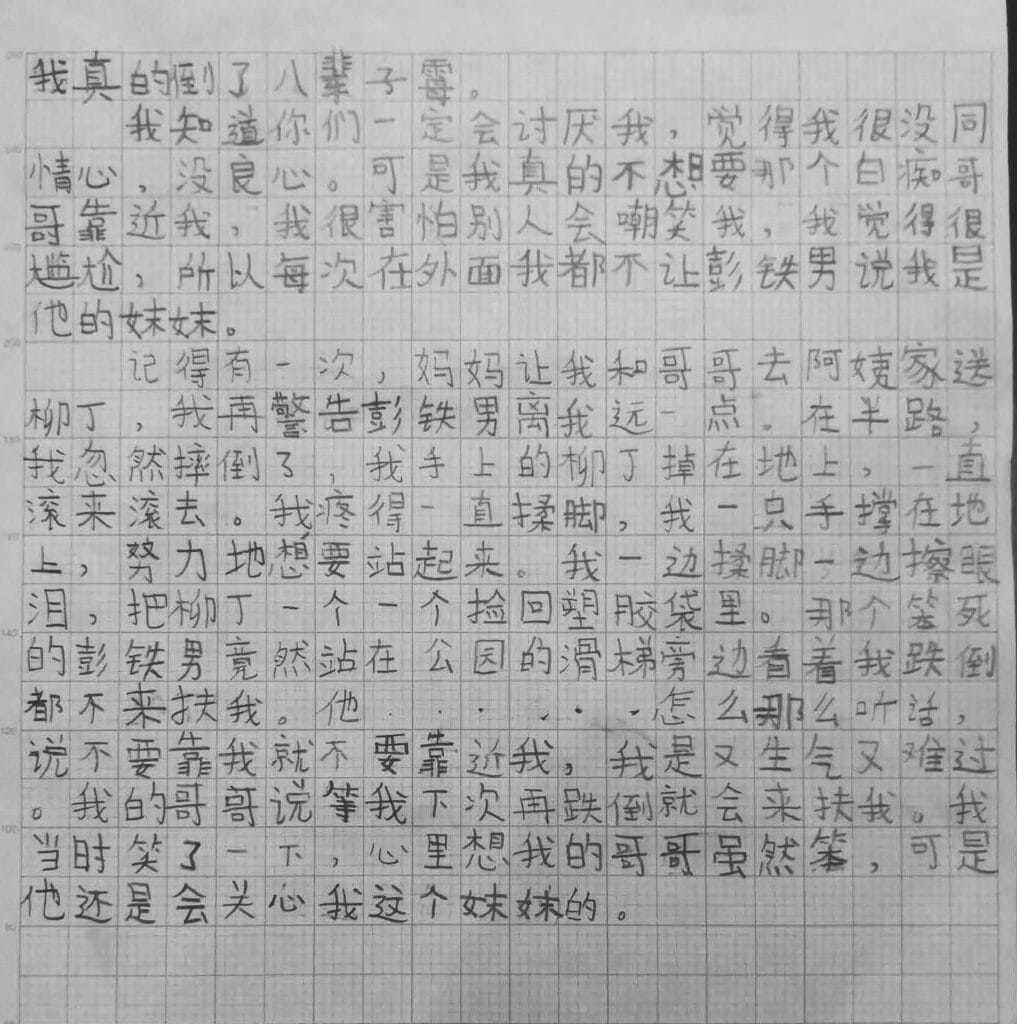 我真的倒了八辈子霉。
我知道你们一定会讨厌我，觉得我很没同
情心，没良心。可是我真的不想要那个白痴哥
哥靠近我，我很害怕别人会嘲笑我，我觉得很
尴尬，所以每次在外面我都不让彭铁男说我是
他的妹妹。
记得有一次，妈妈让我和哥哥去阿姨家送
柳丁，我再警告彭铁男离我远一点。在半路，
我忽然摔倒了，我手上的柳丁掉在地上，一直
滚来滚去。我疼得一直揉脚，我一只手撑在地
上，努力地想要站起来。我一边揉脚一边擦眼
泪，把柳丁一个一个捡回塑胶袋里。那个笨死
的彭铁男竟然站在公园的滑梯旁边看着我跌倒
都不来扶我。他······怎么那么听话，
说不要靠我就不要靠近我，我是又生气又难过
。我的哥哥说等我下次再跌倒就会来扶我。我
当时笑了一下，心里想我的哥哥虽然笨，可是
他还是会关心我这个妹妹的。
200
180
140
120
100
80